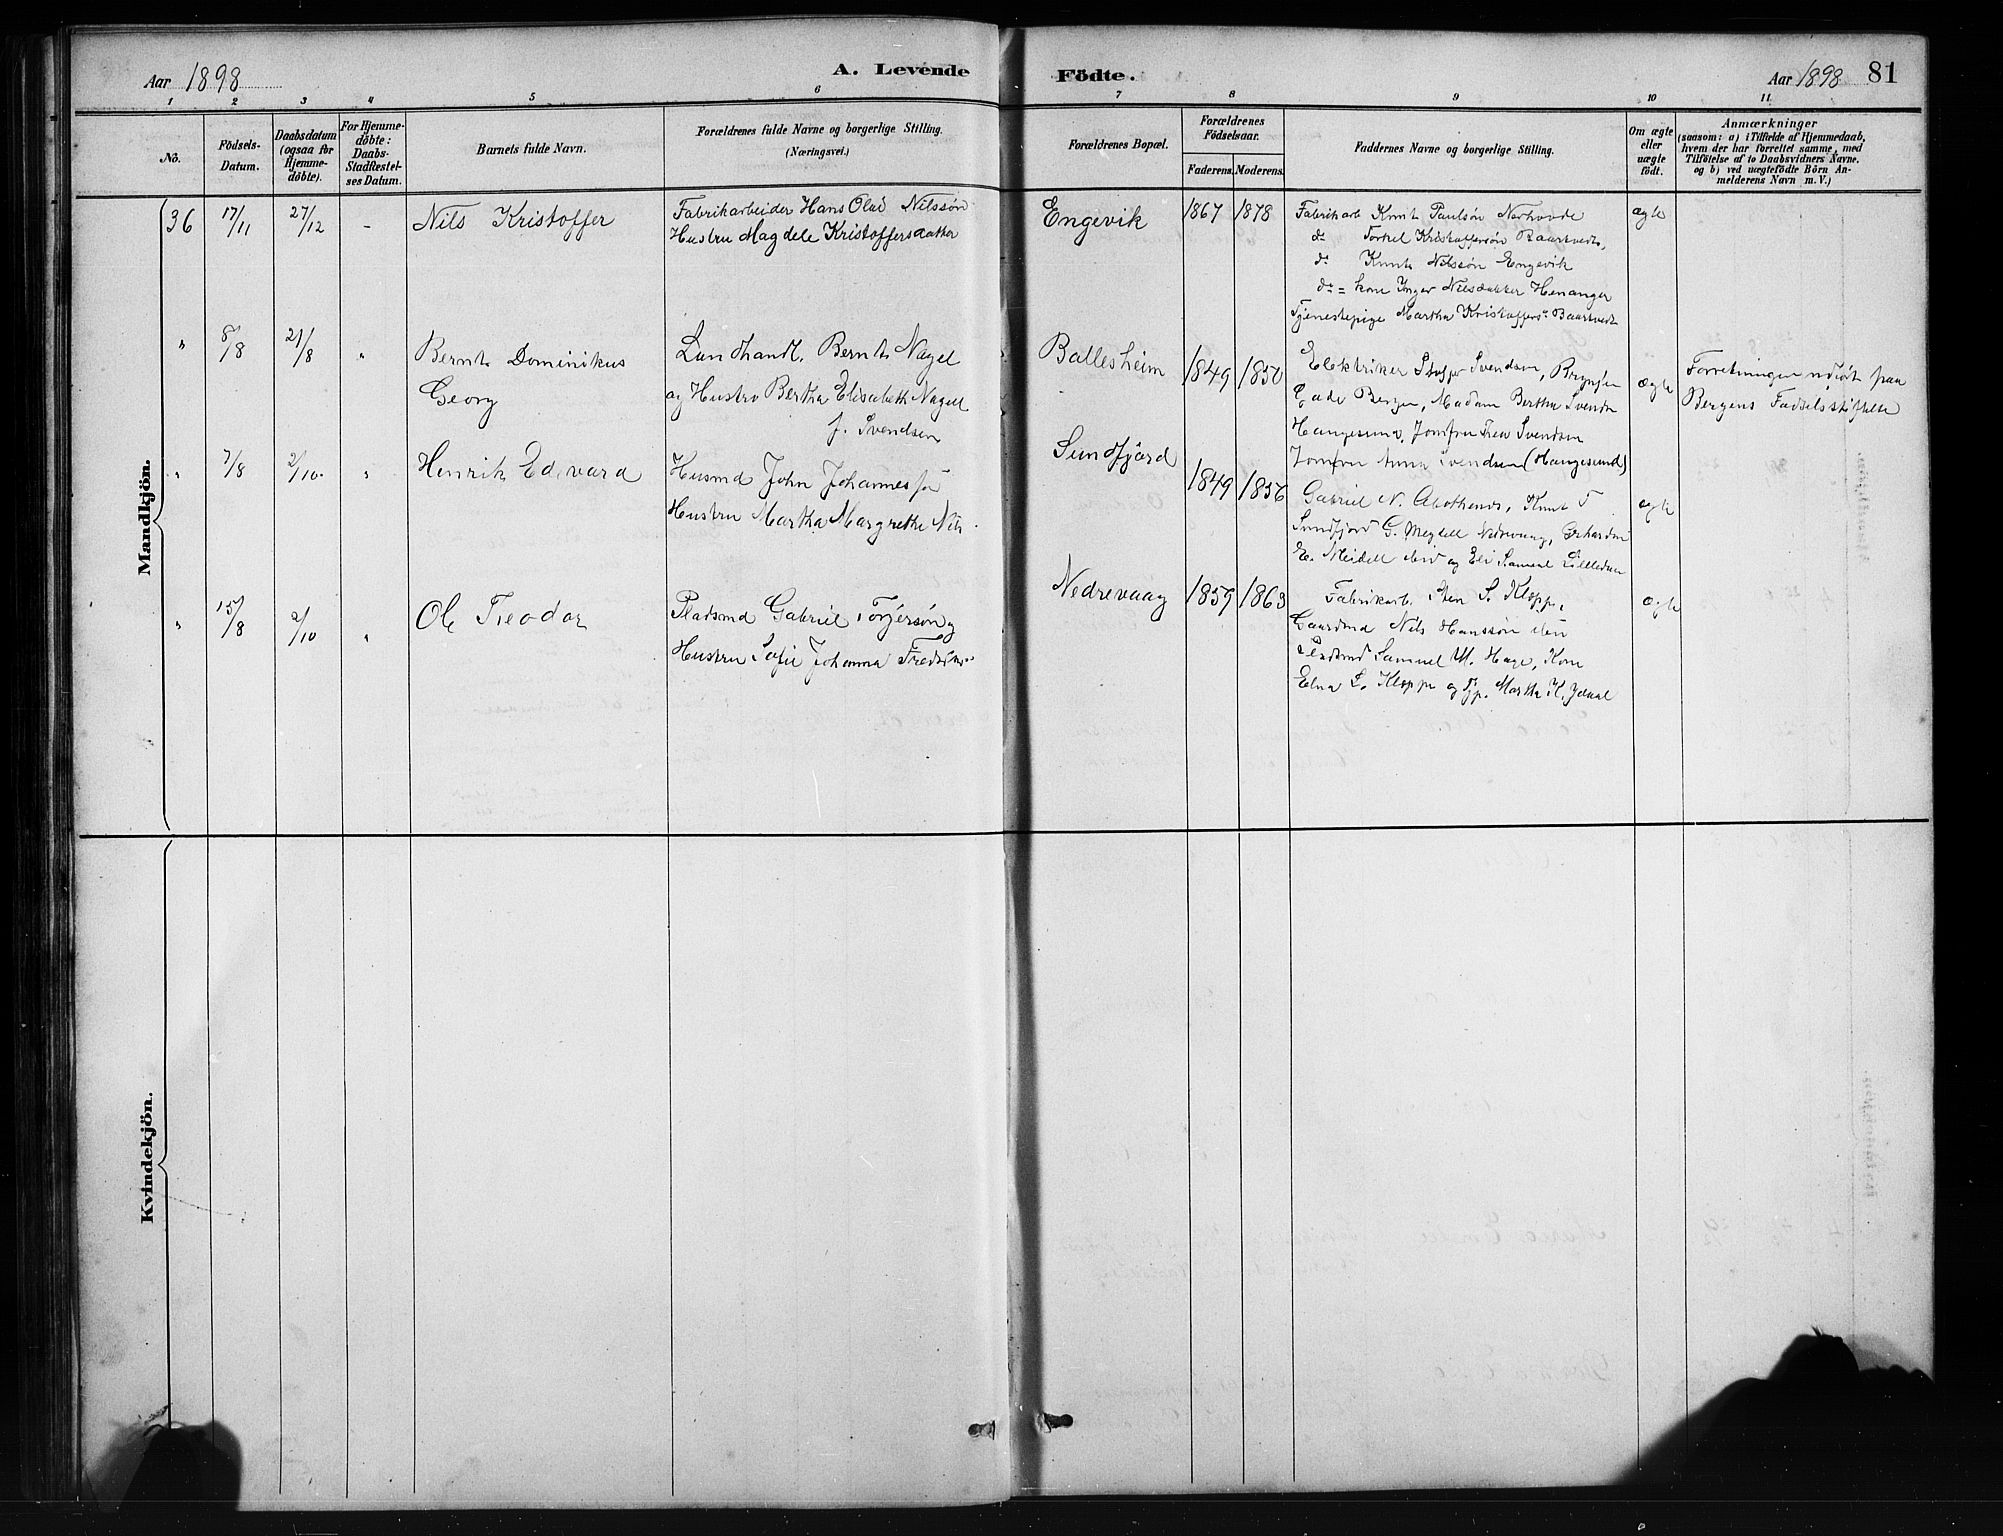 Aar 1898
A. Levende
Födte.
Aar 1898
81
1 2 3 4 5 6 7 8 9 10 11
No.
Födsels-
Datum.
Daabsdatum
(ogsaa for
Hjemme-
döbte).
For Hjemme-
döbte:
Daabs-
Stadfæstel-
ses Datum.
Barnets fulde Navn.
Forældrenes fulde Navne og borgerlige Stilling.
(Næringsvei.)
Forældrenes Bopæl.
Forældrenes
Födselsaar.
Faderens. Moderens.
Faddernes Navne og borgerlige Stilling.
Om ægte
eller
uægte
födt.
Anmærkninger
(saasom: a) i Tilfælde af Hjemmedaab,
hvem der har forrettet samme, med
Tilföielse af to Daabsvidners Navne.
og b) ved uægtefödte Börn An-
melderens Navn m. V.)
Mandkjön.
36 17/11 27/12 -
Nils Kristoffer
Fabrikarbeider Hans Olai Nilssøn
Hustru Magdele Kristoffersdatter
Engevik
1867 1878
Fabrikarb Knut Paulsøn
do Torkel Kristoffersøn Baartvedt,
do Knut Nilssøn Engevik
do = kone Inger Nilsdatter Henanger
Tjenestepige Martha Kristoffers. Baartvedt
ægte
" 8/8 21/8 "
Bernt Dominikus
Georg
Landhandl. Bernt Nagel
og Hustro Bertha Elisabeth Nagel
f. Svendsen
Ballesheim
1849 1850
Elektriker Svendsen,
Gade Bergen, Madam Bertha Svends
Haugesund, Jomfru Svendsen
Jomfru Anna Svendsen (Haugesund)
ægte
Forretningen udført paa
Bergens Fødselsstiftelse
" 7/8 2/10 "
Henrik Edevard
Husmd John Johannessøn
Hustru Martha Margrethe Nils
Sundfjord
1849 1856
Gabriel N. Knut T
Sundfjord G. Nedrevaag,
E. Meidell og Eli
ægte
" 15/8 2/10 "
Ole Teodor
Pladsmd Gabriel Torjersøn og
Hustru Sofie Johanna
Nedrevaag
1859 1863
Fabrikarb. Sten S. Kloppe,
Gaardmd Nils Hanssøn
Pladsmd Samuel M. Hage, Kone
Elna L. Kloppe og Tjp. Martha K.
ægte
Kvindekjön.